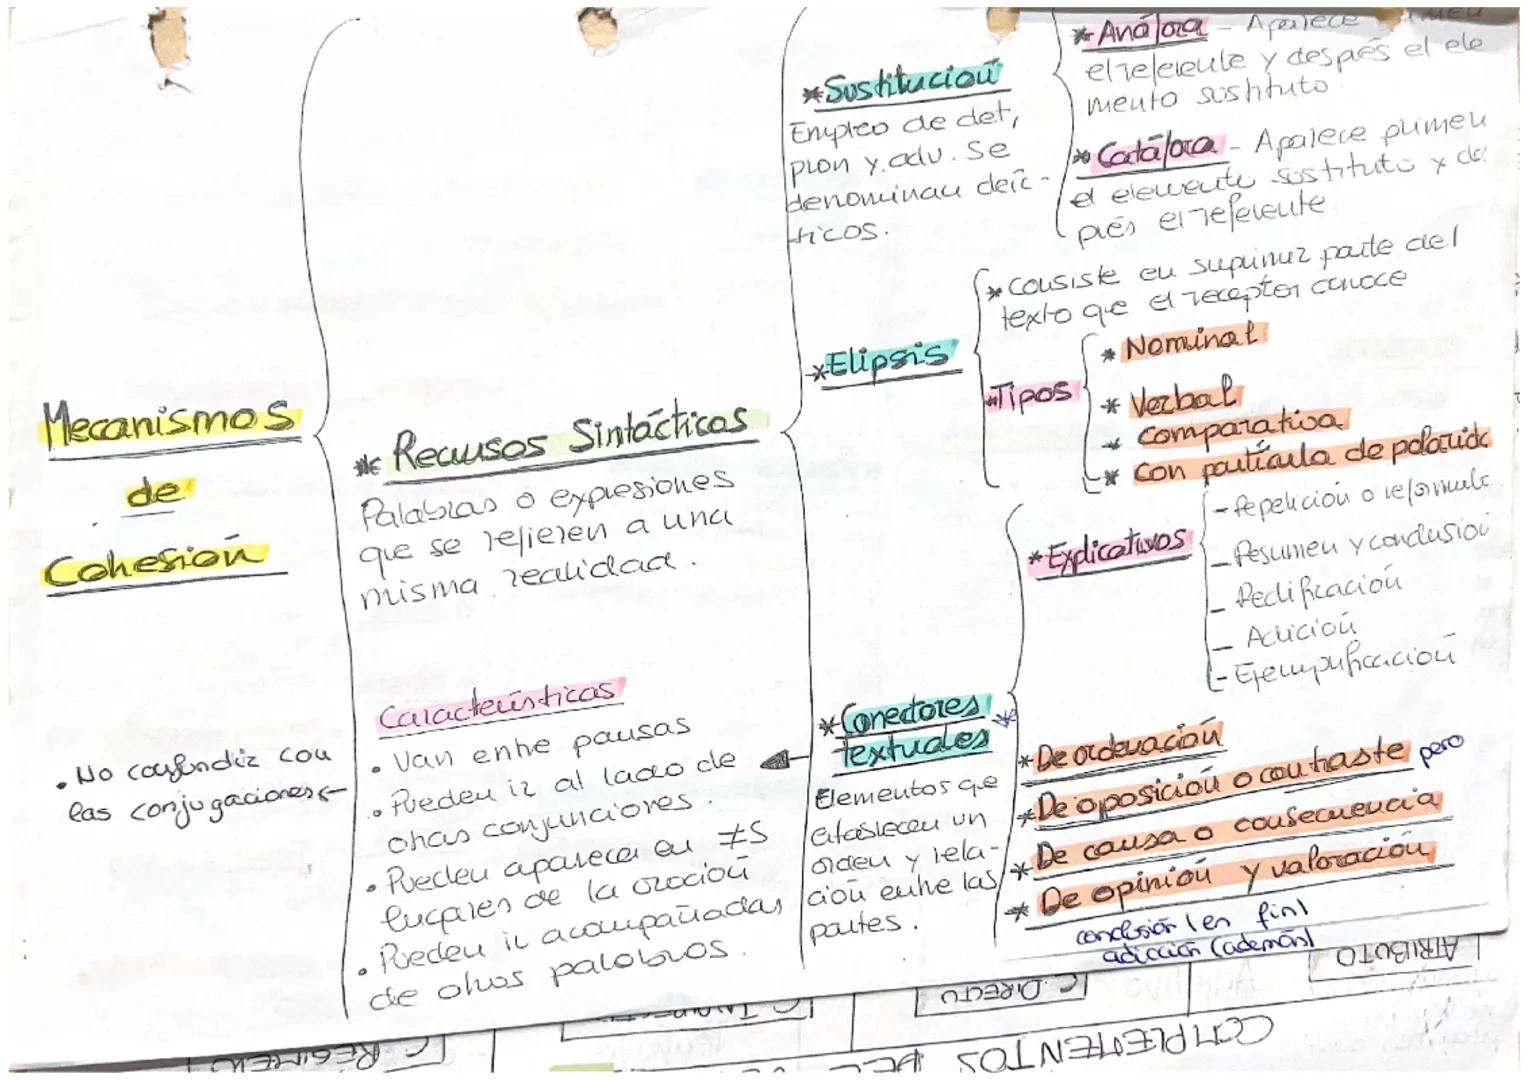 Mecanismos
de
Cohesión
. No confundir con
las conjugaciones
* Recursos Sintácticos
Palabras o expresiones
que se refieren a una
misma realidad.
Características
. Van entre pausas
. Pueden ir al lado de
otras conjunciones.
. Pueden aparecer en ≠s
lugares de la oración
. Pueden ir acompañadas
de otras palabras.
* Sustitución
Empleo de det,
pron y adv. Se
denominan deíc-
ticos.
* Anáfora - Aparece
el referente y después el ele
mento sustituto
* Catáfora - Aparece primero
el elemento sustituto y des
pués el referente
* Elipsis
* consiste en suprimir parte del
texto que el receptor conoce
* Tipos
* Nominal
* Verbal
* comparativa
* con partícula de polarida
* Conectores
textuales
Elementos que
establecen un
orden y rela-
ción entre las
partes.
* Explicativos
- Repetición o reformula
- Resumen y conclusión
- Rectificación
- Adición
- Ejemplificación
* De ordenación
* De oposición o contraste pero
* De causa o consecuencia
* De opinión y valoración
conclusión (en fin)
adicción (además)
ATRIBUTO
C. DIRECTO
COMPLEMENTOS DEL
C. REGIMEN